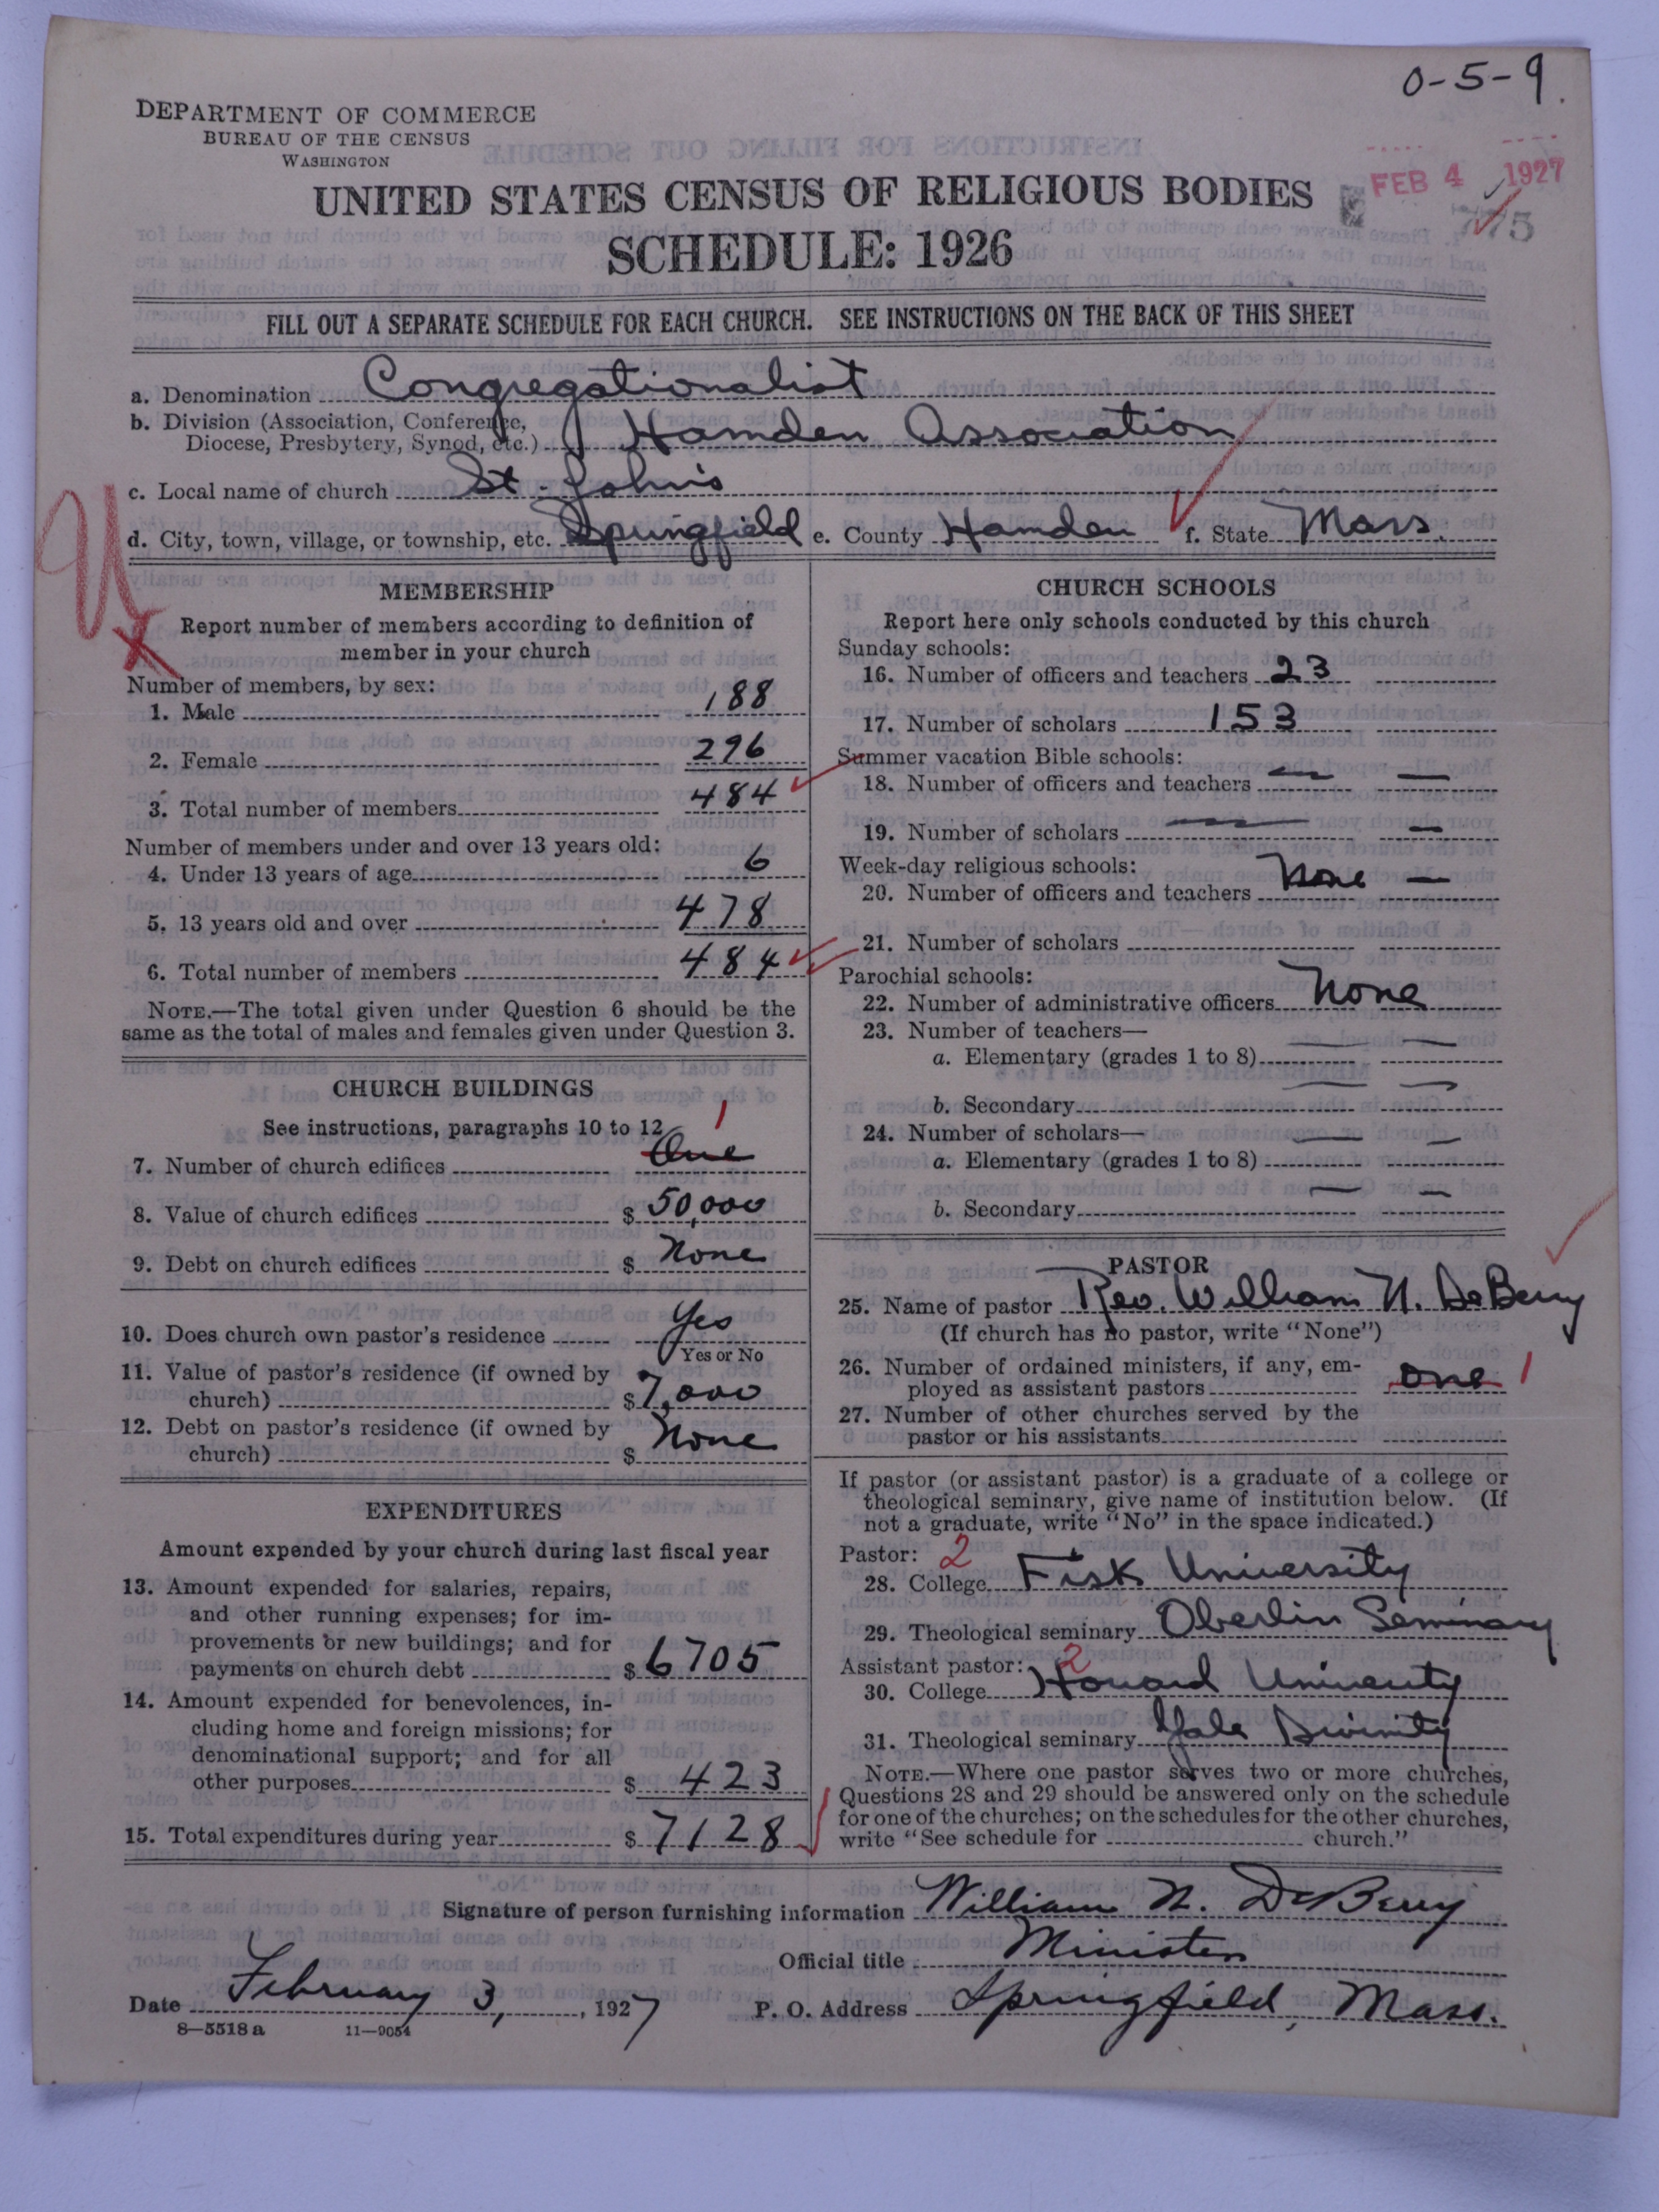 0-5-9.
DEPARTMENT OF COMMERCE
BUREAU OF THE CENSUS
WASHINGTON
FEB 4 1927
UNITED STATES CENSUS OF RELIGIOUS BODIES
SCHEDULE: 1926
FILL OUT A SEPARATE SCHEDULE FOR EACH CHURCH. SEE INSTRUCTIONS ON THE BACK OF THIS SHEET
a. Denomination Congregationalist
b. Division (Association, Conference,
Diocese, Presbytery, Synod, etc.) Hamden Association
c. Local name of church St. John's
d. City, town, village, or township, etc. Springfield e. County Hamden f. State Mass.
MEMBERSHIP
Report number of members according to definition of
member in your church
Number of members, by sex:
1. Male 188
2. Female 296
3. Total number of members 484
Number of members under and over 13 years old:
4. Under 13 years of age 6
5. 13 years old and over 478
6. Total number of members 484
NOTE.—The total given under Question 6 should be the
same as the total of males and females given under Question 3.
CHURCH BUILDINGS
See instructions, paragraphs 10 to 12
1
7. Number of church edifices One
8. Value of church edifices $ 50,000
9. Debt on church edifices $ None
10. Does church own pastor's residence Yes
Yes or No
11. Value of pastor's residence (if owned by
church) $ 7,000
12. Debt on pastor's residence (if owned by
church) $ None
EXPENDITURES
Amount expended by your church during last fiscal year
13. Amount expended for salaries, repairs,
and other running expenses; for im-
provements or new buildings; and for
payments on church debt $ 6705
14. Amount expended for benevolences, in-
cluding home and foreign missions; for
denominational support; and for all
other purposes $ 423
15. Total expenditures during year $ 7128
CHURCH SCHOOLS
Report here only schools conducted by this church
Sunday schools:
16. Number of officers and teachers 23
17. Number of scholars 153
Summer vacation Bible schools:
18. Number of officers and teachers — —
19. Number of scholars — —
Week-day religious schools:
20. Number of officers and teachers None —
21. Number of scholars
Parochial schools:
22. Number of administrative officers None
23. Number of teachers—
a. Elementary (grades 1 to 8) — —
b. Secondary — —
24. Number of scholars—
a. Elementary (grades 1 to 8) — —
b. Secondary — —
PASTOR
25. Name of pastor Rev. William N. DeBerry
(If church has no pastor, write "None")
26. Number of ordained ministers, if any, em-
ployed as assistant pastors one 1
27. Number of other churches served by the
pastor or his assistants
If pastor (or assistant pastor) is a graduate of a college or
theological seminary, give name of institution below. (If
not a graduate, write "No" in the space indicated.)
Pastor: 2
28. College Fisk University
29. Theological seminary Oberlin Seminary
Assistant pastor: 2
30. College Howard University
31. Theological seminary Yale Divinity
NOTE.—Where one pastor serves two or more churches,
Questions 28 and 29 should be answered only on the schedule
for one of the churches; on the schedules for the other churches,
write "See schedule for church."
Signature of person furnishing information William N. DeBerry
Official title Minister
Date February 3, 1927 P. O. Address Springfield, Mass.
8—5518 a 11—9054